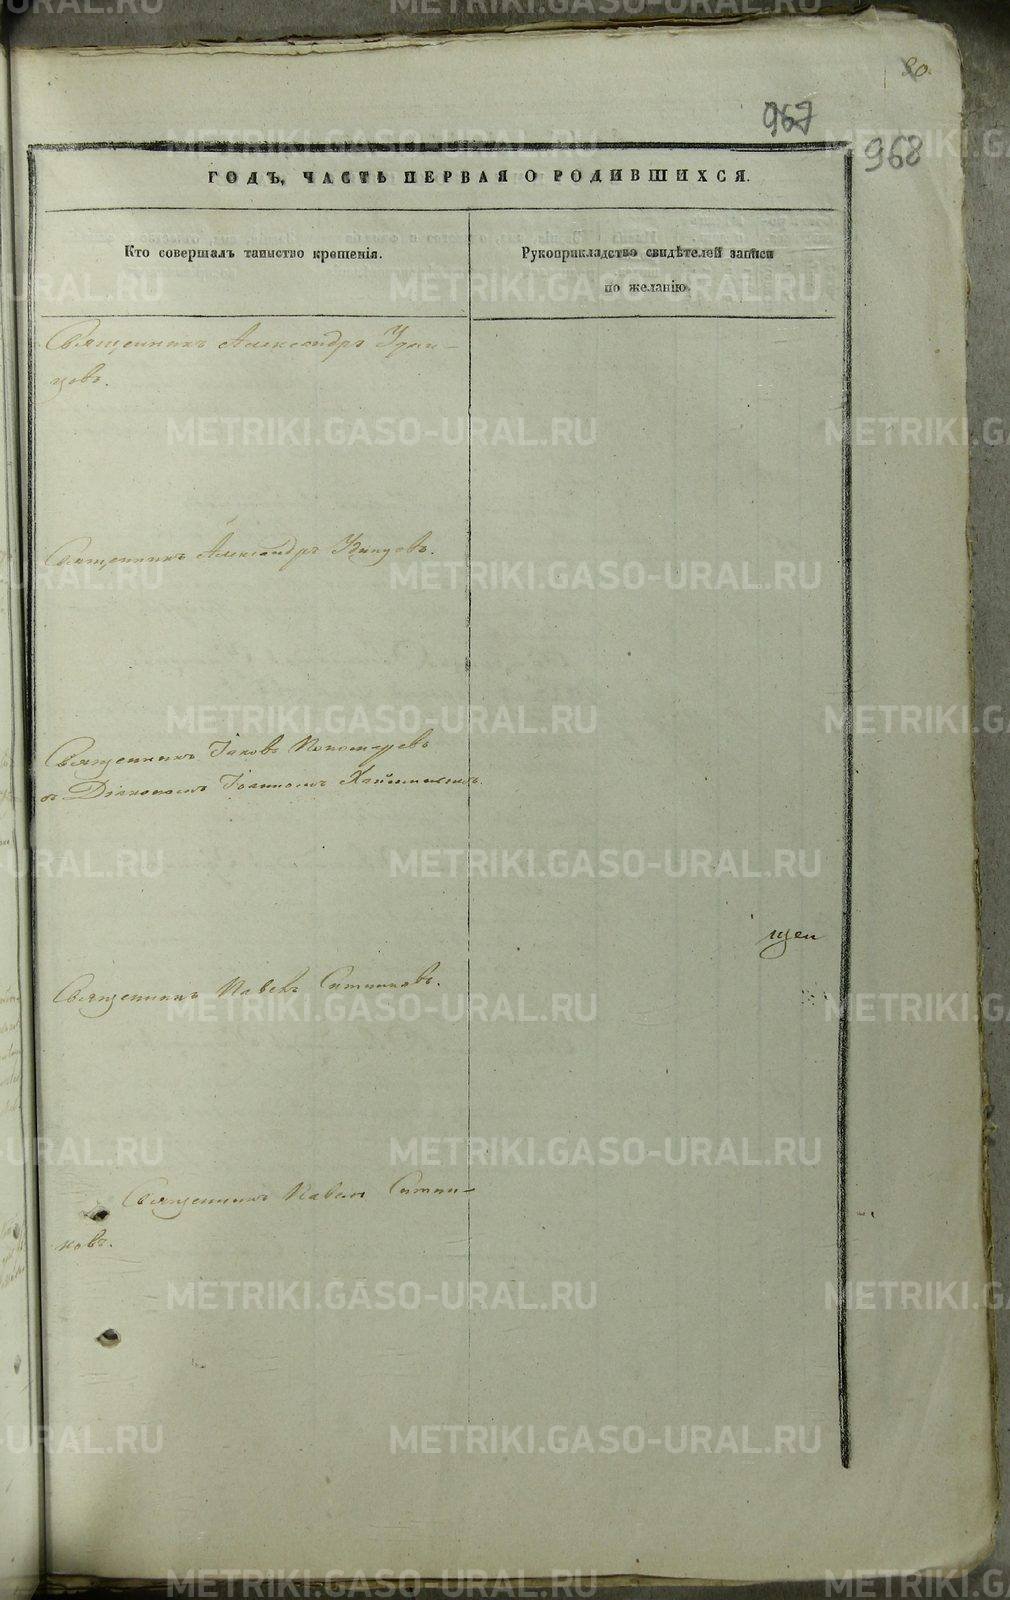 80.
967
968
ГОДЪ, ЧАСТЬ ПЕРВАЯ О РОДИВШИХСЯ.
Кто совершалъ таинство крещенія.
Рукоприкладство свидѣтелей записи
по желанію.
Священникъ Александръ Удин-
цовъ.
Священникъ Александръ Удинцовъ.
Священникъ Іаковъ Пономаревъ
съ Діакономъ Іоанномъ
щен
Священникъ Павелъ Ситниковъ.
Священникъ Павелъ Ситни-
ковъ.
METRIKI.GASO-URAL.RU